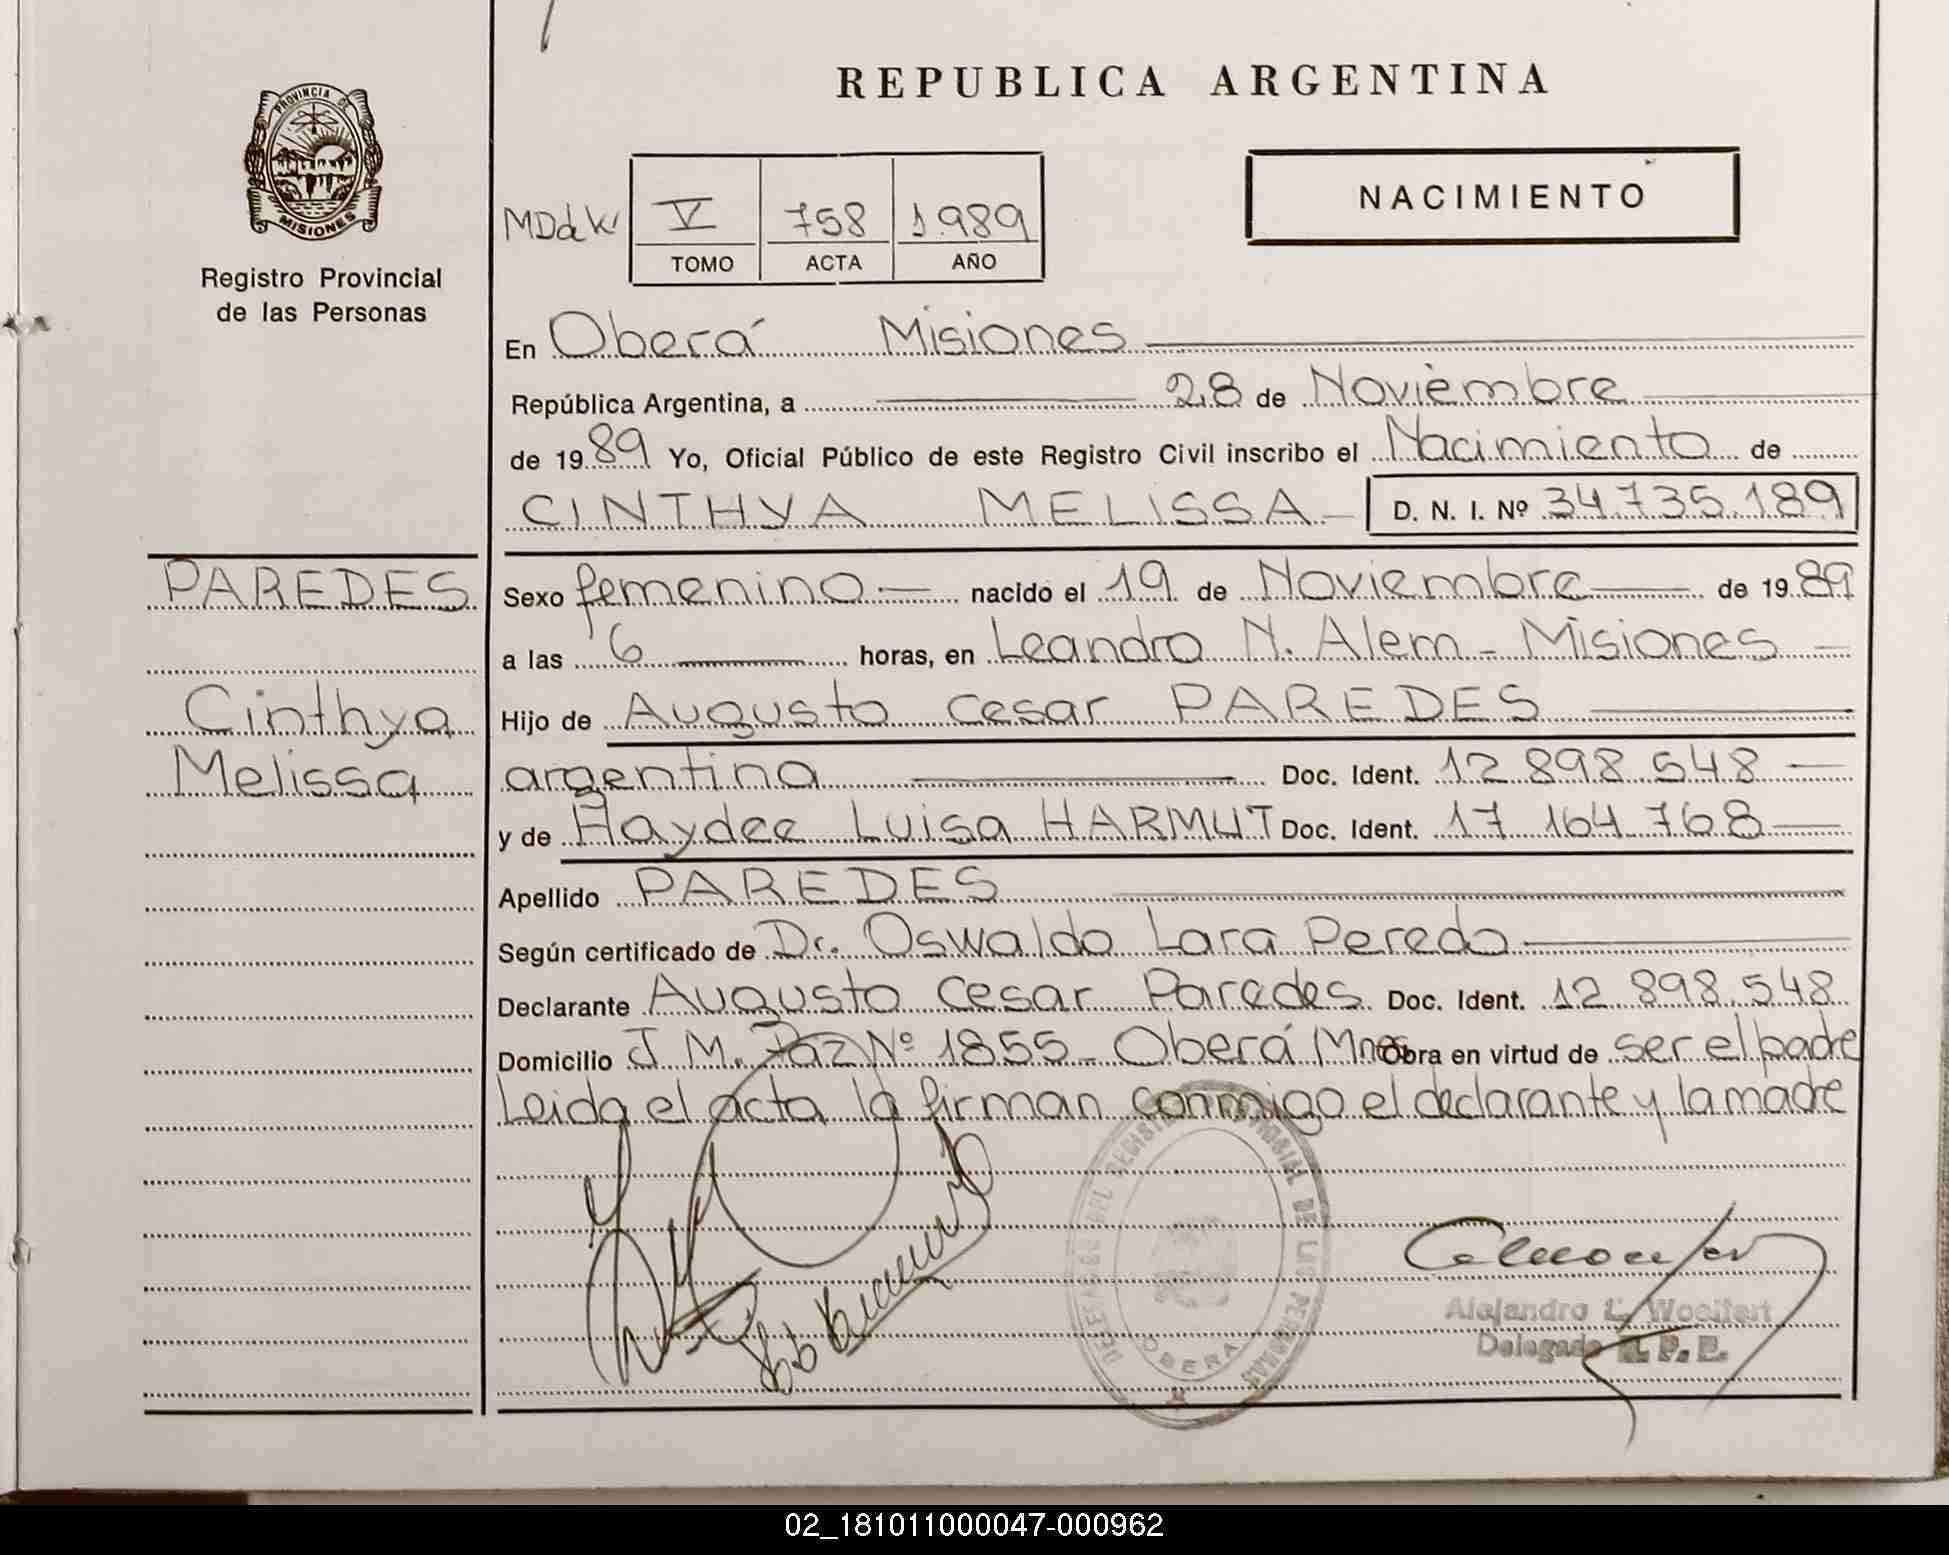 REPUBLICA ARGENTINA
PROVINCIA DE
MISIONES
Registro Provincial
de las Personas
V 758 1989
TOMO ACTA AÑO
NACIMIENTO
En Oberá Misiones
República Argentina, a 28 de Noviembre
de 1989 Yo, Oficial Público de este Registro Civil inscribo el Nacimiento de
CINTHYA MELISSA D. N. I. Nº 34.735.189
PAREDES
Cinthya
Melissa
Sexo femenino nacido el 19 de Noviembre de 1989
a las 6 horas, en Leandro N. Alem - Misiones
Hijo de Augusto Cesar PAREDES
argentina Doc. Ident. 12 898 548
y de Haydee Luisa HARMUT Doc. Ident. 17 164 768
Apellido PAREDES
Según certificado de Dr. Oswaldo Lara Peredo
Declarante Augusto Cesar Paredes Doc. Ident. 12 898 548
Domicilio J. M. Paz Nº 1855 - Oberá Mnes Obra en virtud de ser el padre
Leida el acta la firman conmigo el declarante y la madre
OBERA
Alejandro L. Woelfert
Delegado R. P. P.
02_181011000047-000962